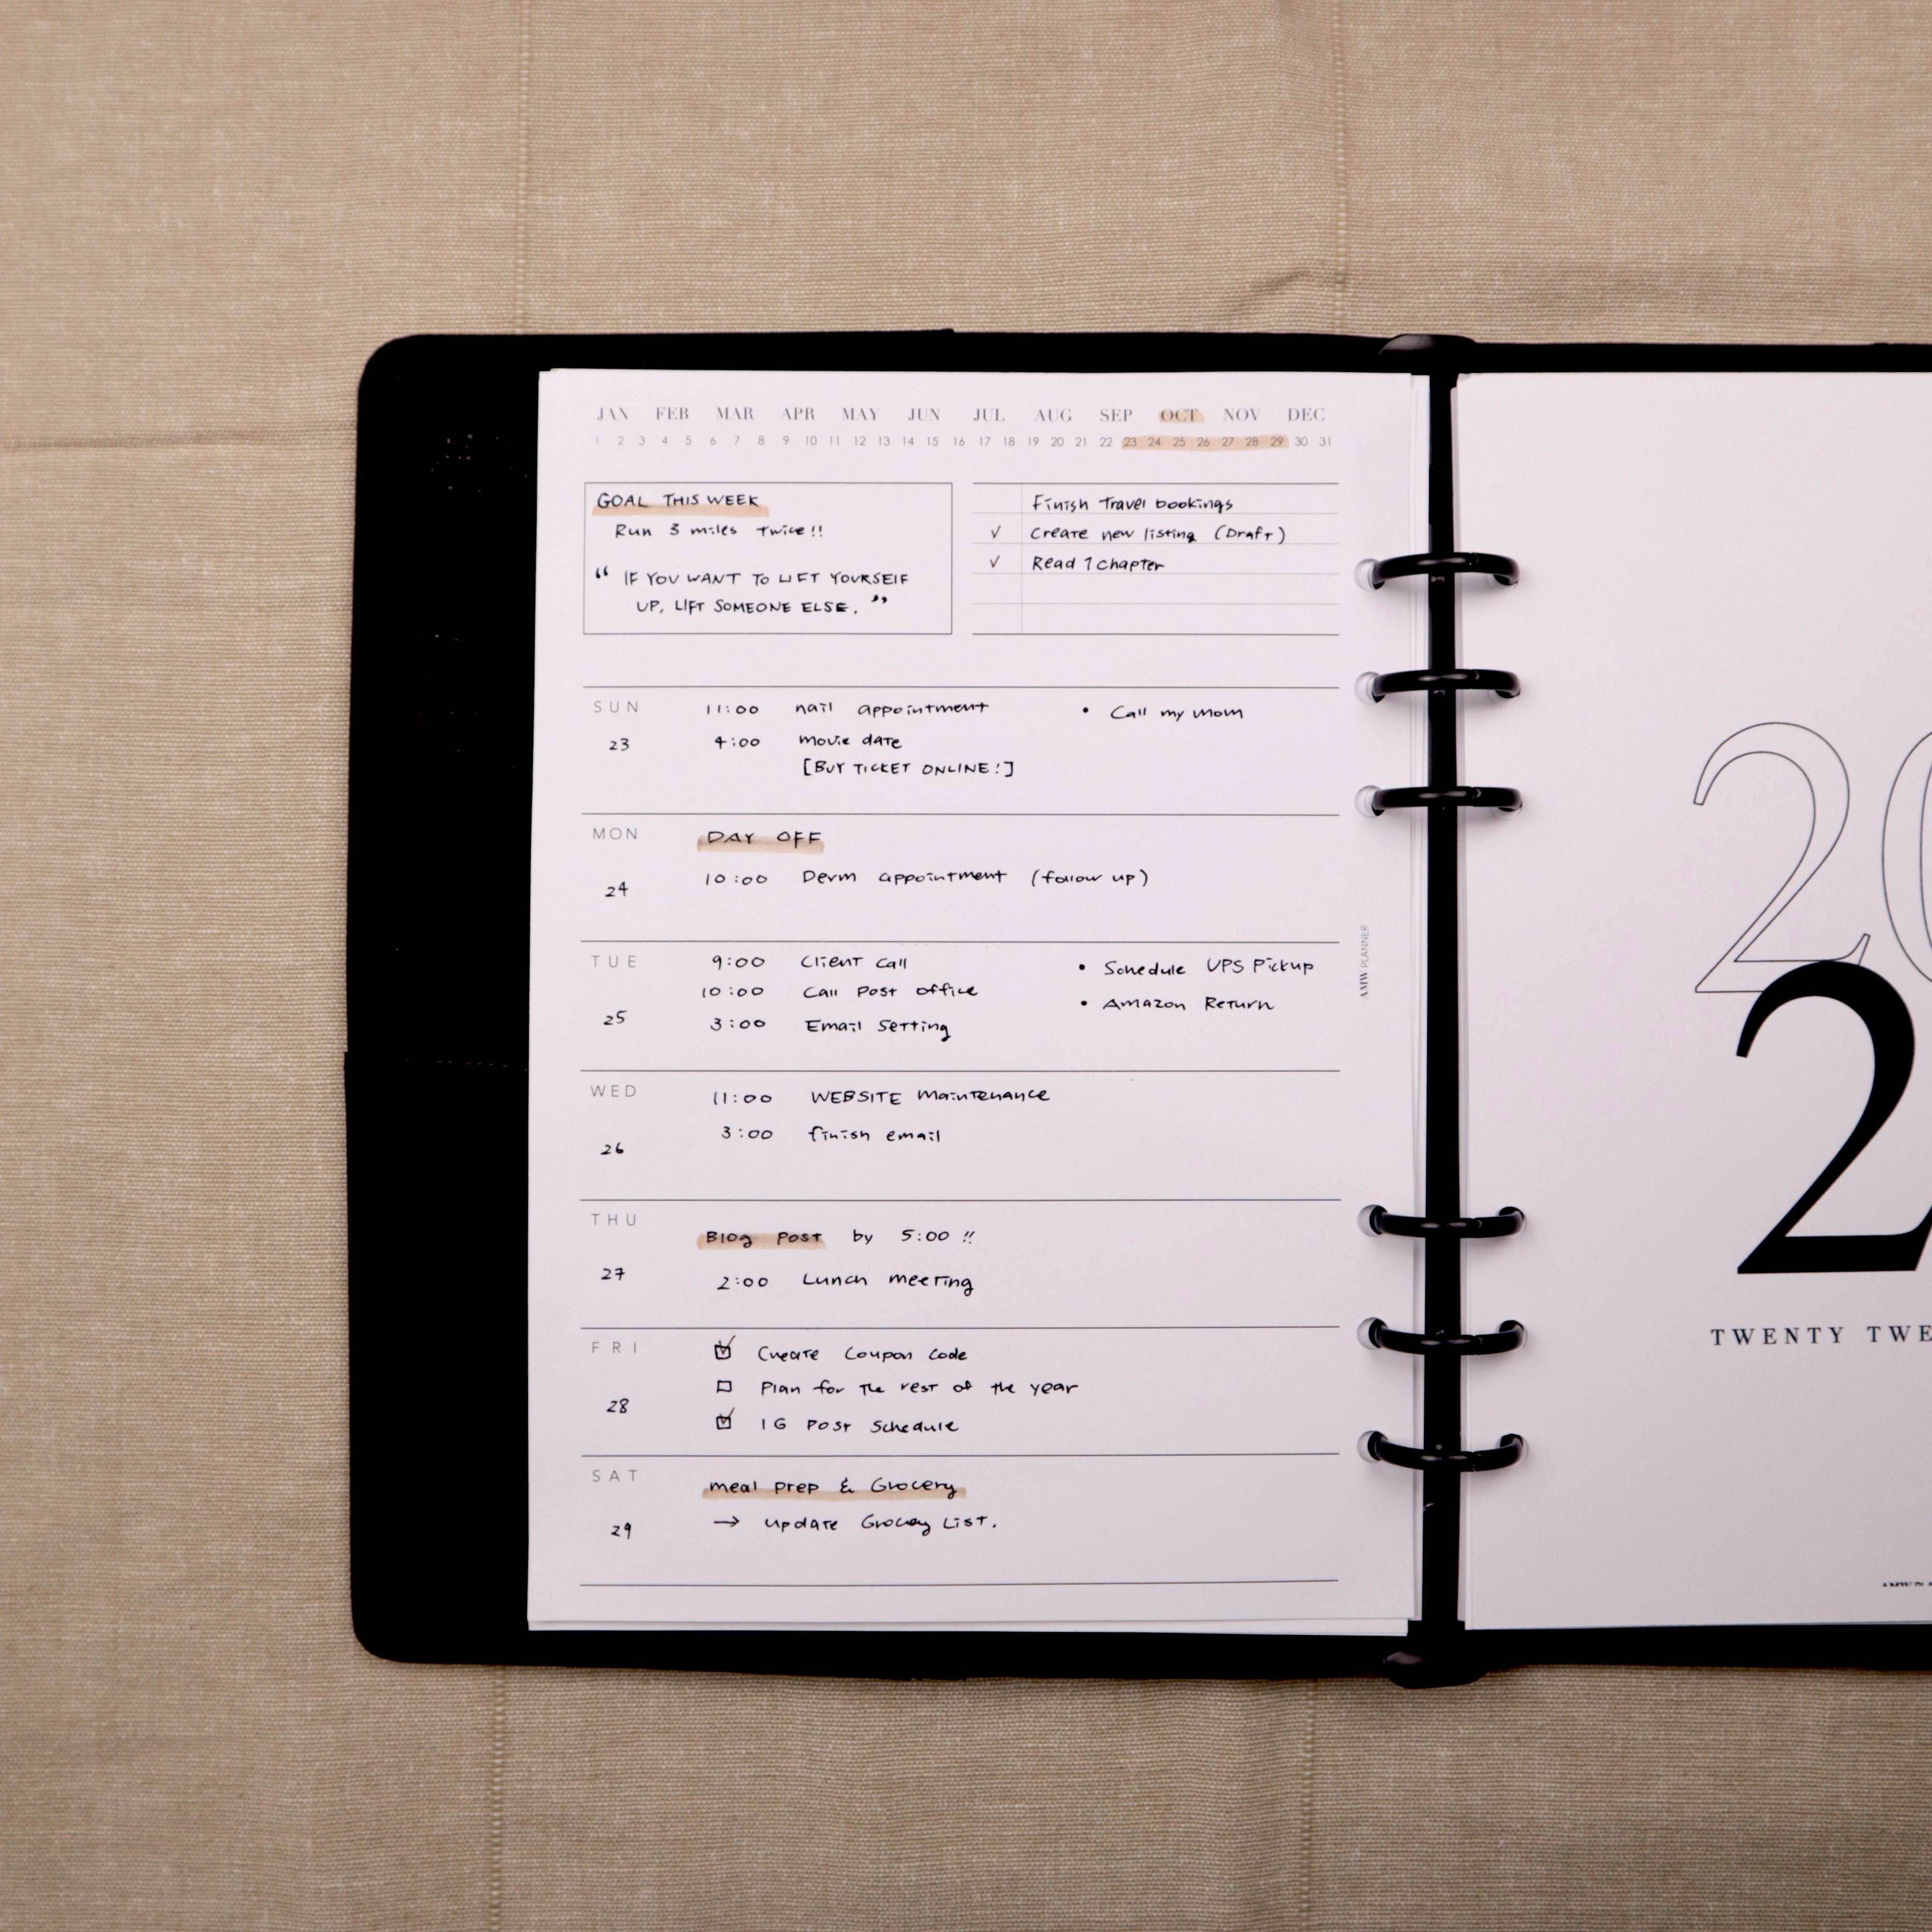 JAN FEB MAR APR MAY JUN JUL AUG SEP OCT NOV DEC
1 2 3 4 5 6 7 8 9 10 11 12 13 14 15 16 17 18 19 20 21 22 23 24 25 26 27 28 29 30 31
GOAL THIS WEEK
Run 3 miles twice!!
“ IF YOU WANT TO LIFT YOURSELF
UP, LIFT SOMEONE ELSE. ”
Finish Travel bookings
✓ Create new listing (Draft)
✓ Read 1 chapter
SUN
23
11:00 nail appointment
4:00 movie date
[BUY TICKET ONLINE!]
• Call my mom
MON
24
DAY OFF
10:00 Derm appointment (follow up)
TUE
25
9:00 Client call
10:00 Call Post office
3:00 Email Setting
• Schedule UPS Pickup
• Amazon Return
WED
26
11:00 WEBSITE Maintenance
3:00 finish email
THU
27
Blog Post by 5:00 !!
2:00 Lunch meeting
FRI
28
☑ Create Coupon Code
☐ Plan for the rest of the year
☑ IG Post Schedule
SAT
29
meal prep & Grocery
→ update Grocery List.
AMW PLANNER
20
2
TWENTY TWE